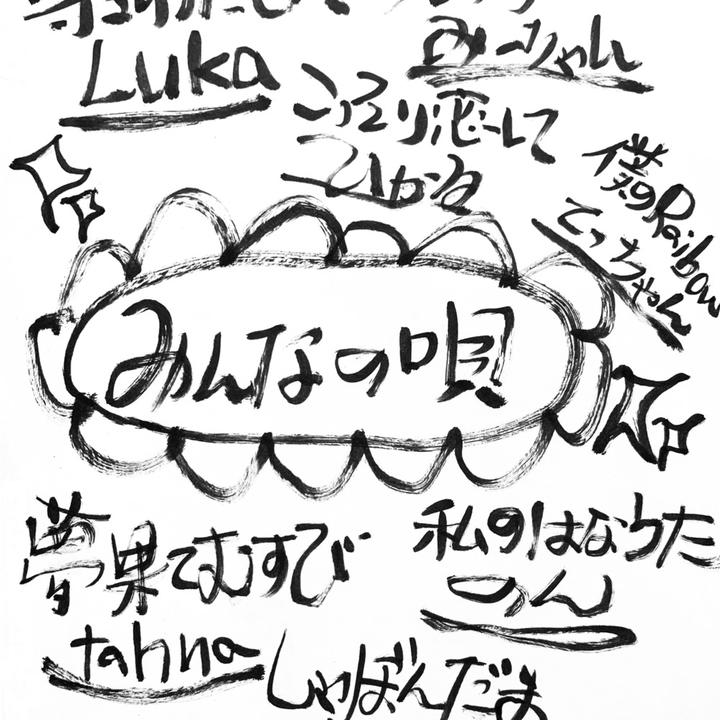 Luka
みーちゃん
こってり恋して
ひかる
僕のRaibow
てっちゃん
みんなの唄
夢果てむすび
tahna
私のはなうた
のん
しゃぼんだま